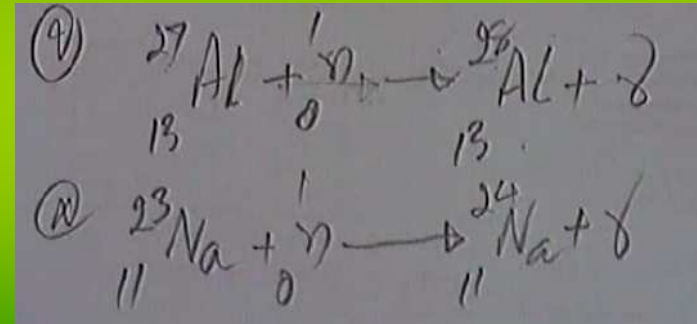 (v) ²⁷₁₃Al + ¹₀n → ²⁸₁₃Al + γ
(vi) ²³₁₁Na + ¹₀n → ²⁴₁₁Na + γ